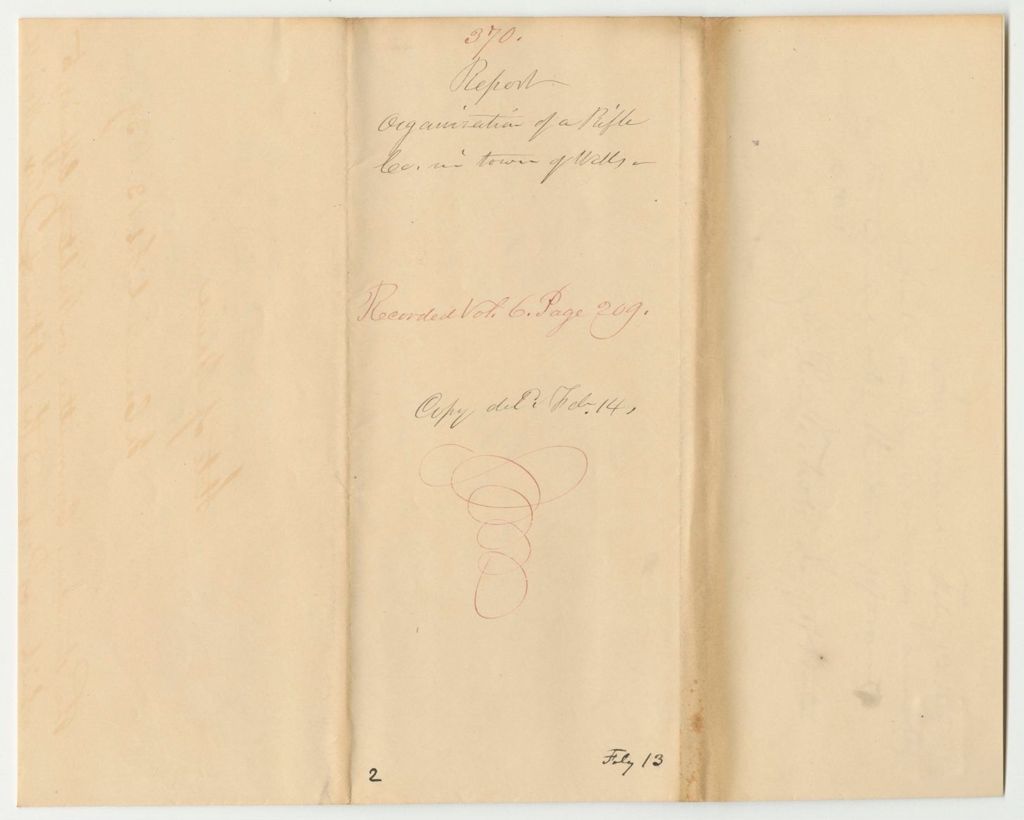 370.
Report
Organization of a Rifle
Co. in town of Wells
Recorded Vol. 6. Page 209.
Copy del'd Feb. 14,
2
Feby 13